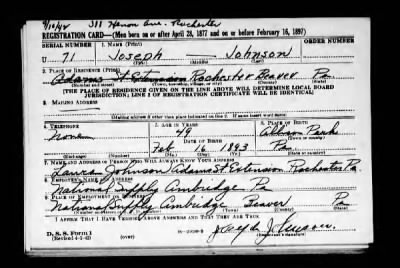 9/10/42 311 Ave. Rochester
REGISTRATION CARD—(Men born on or after April 28, 1877 and on or before February 16, 1897)
SERIAL NUMBER 1. NAME (Print) ORDER NUMBER
U 71 Joseph Johnson
(First) (Middle) (Last)
2. PLACE OF RESIDENCE (Print)
Adams St Extension Rochester Beaver Pa
(State)
[THE PLACE OF RESIDENCE GIVEN ON THE LINE ABOVE WILL DETERMINE LOCAL BOARD
JURISDICTION; LINE 2 OF REGISTRATION CERTIFICATE WILL BE IDENTICAL]
3. MAILING ADDRESS
[Mailing address if other than place indicated on line 2. If same insert word same]
4. TELEPHONE 5. AGE IN YEARS 6. PLACE OF BIRTH
None 49
DATE OF BIRTH
Feb 16 1893 Pa.
(Mo.) (Day) (Yr.)
7. NAME AND ADDRESS OF PERSON WHO WILL ALWAYS KNOW YOUR ADDRESS
Laura Johnson Adams St Extension Rochester Pa.
8. EMPLOYER'S NAME AND ADDRESS
National Supply Ambridge Pa
9. PLACE OF EMPLOYMENT OR BUSINESS
National Supply Ambridge Beaver Pa
I AFFIRM THAT I HAVE VERIFIED ABOVE ANSWERS AND THAT THEY ARE TRUE.
D. S. S. Form 1
(Revised 4-1-42) (over)